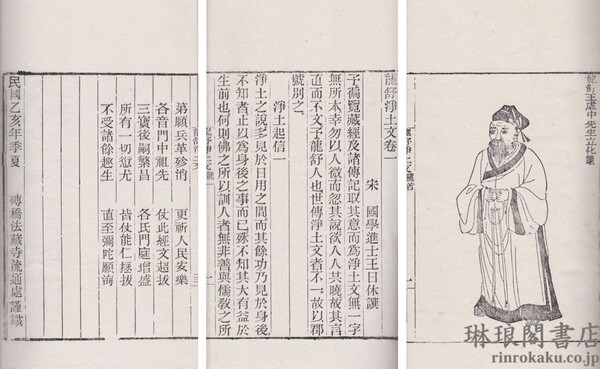 龍舒王虛中先生立化像
龍舒淨土文卷一
宋 國學進士王日休譔
予徧覽藏經及諸傳記取其意而為淨土文無一字
無所本幸勿以人微而忽其說欲人人共曉故其言
直而不文予龍舒人也世傳淨土文者不一故以郡
號別之
淨土起信一
淨土之說多見於日用之間而其餘功乃見於身後
不知者止以為身後之事而已殊不知其大有益於
生前也何則佛之所以訓人者無非善與儒教之所
第願兵革殄消 更祈人民安樂
各音門中祖先 仗此經文超拔
三寶後嗣繁昌 各氏門庭增盛
所有一切愆尤 皆仗能仁拯拔
不受諸餘趣生 直至彌陀願海
民國乙亥年季夏 磚橋法藏寺流通處謹識
琳琅閣書店
rinrokaku.co.jp